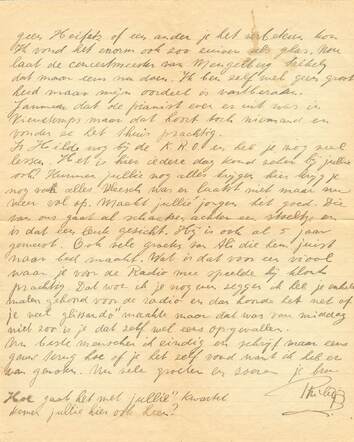 geen Heifetz of een ander je het verbeteren kon
Ik vond het enorm ook zoo zuiver als glas. Nou
laat de concertmeester van Mengelberg
dat maar eens na doen. Ik ben zelf wel geen groot
heid maar mijn oordeel is
Jammer dat de pianist over er uit was in
maar dat hoort toch niemand en
vonden ze het thuis prachtig.
Is Hilde nog bij de K.R.O. en heb je nog veel
lessen. Het is hier iedere dag kond zeker bij jullie
ook? Kunnen jullie nog alles krijgen hier krijg je
nog van alles Vleesch was er laatst niet maar nu
weer vol op. Maakt jullie jongen het goed. Die
van ons gaat al achter een stoeltje en
is dat een leuk gezicht. Hij is ook al 5 jaar
geweest. Ook vele groeten van Ali die hem juist
naar bed maakt. Wat is dat voor een viool
waar je voor de Radio mee speelde hij klonk
prachtig. Dat wou ik je nog even zeggen ik heb je enkele
malen gehoord voor de radio en dan hoorde het net of
je veel "glissando" maakte maar dat was van middag
niet zoo is je dat zelf wel eens opgevallen.
beste menschen ik eindig en schrijf maar eens
gauw terug hoe of je het zelf vond want ik heb er
van genoten. Nu vele groeten en zoenen je broer
Hoe gaat het met jullie kwartet
komen jullie hier ook heen?